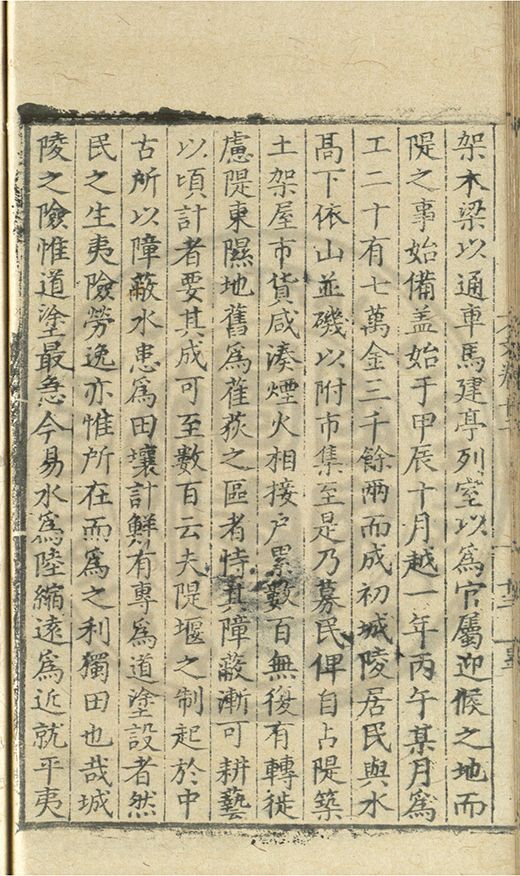 架木梁以通車馬建亭列室以爲官屬迎候之地而
隄之事始備盖始于甲辰十月越一年丙午某月爲
工二十有七萬金三千餘兩而成初城陵居民與水
髙下依山並磯以附市集至是乃募民俾自占隄築
土架屋市貨咸湊煙火相接户累數百無復有轉徙
慮隄東隰地舊爲萑荻之區者恃其障蔽漸可耕藝
以頃計者要其成可至數百云夫隄堰之制起於中
古所以障蔽水患爲田壤計鮮有專爲道塗設者然
民之生夷險勞逸亦惟所在而爲之利獨田也哉城
陵之險惟道塗最急今易水爲陸縮遠爲近就平夷